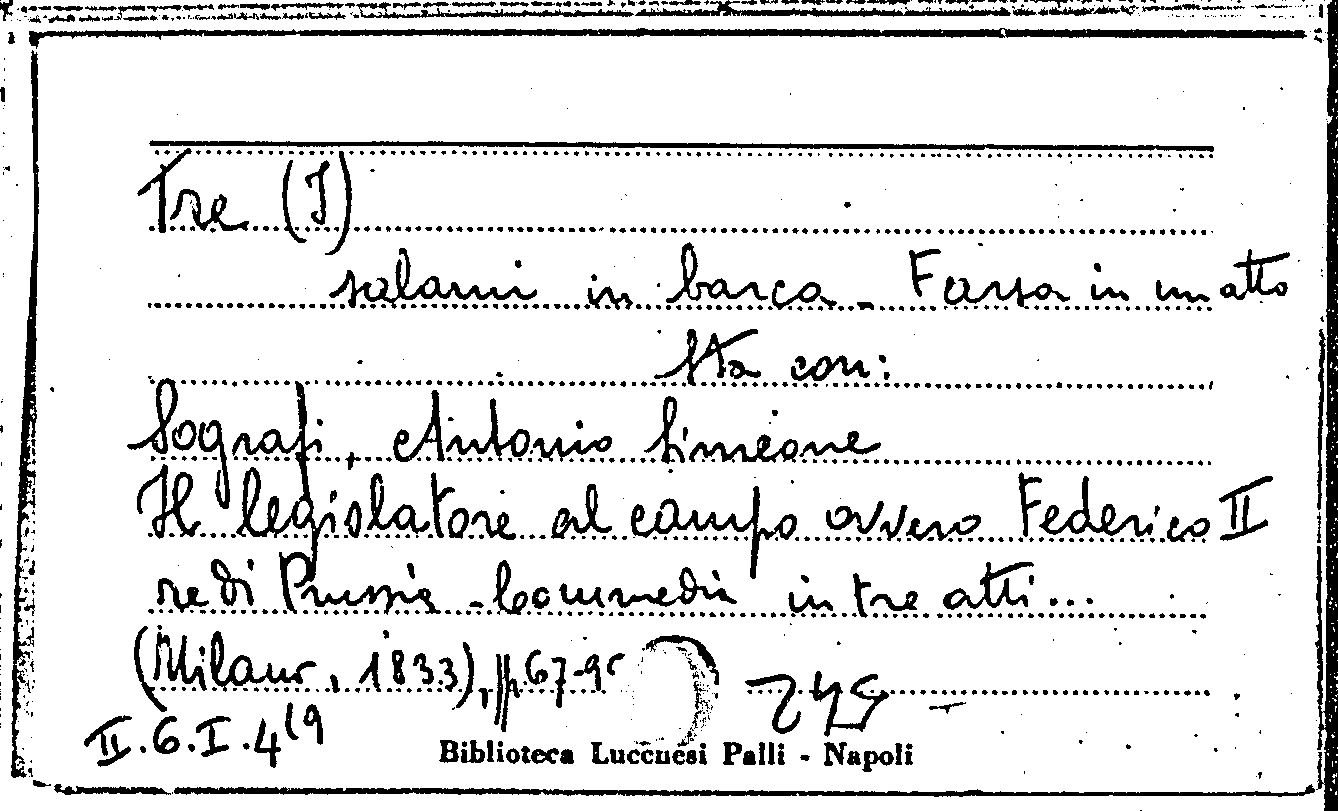 Tre (I)
salami in barca - Farsa in un atto
Sta con:
Sografi, Antonio Simeone
Il legislatore al campo ovvero Federico II
re di Prussia - Commedia in tre atti...
(Milano, 1833), pp. 67-95
II.6.I.4(9
Biblioteca Lucchesi Palli - Napoli